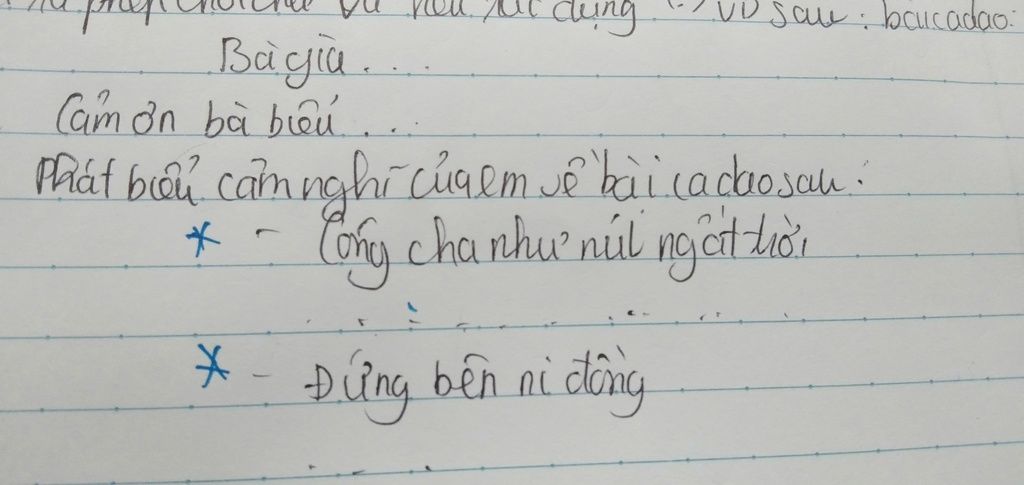 phép chơi chữ và nêu tác dụng () VD sau: bài ca dao:
Bà già....
Cảm ơn bà biếu...
Phát biểu cảm nghĩ của em về bài ca dao sau:
* - Công cha như núi ngất trời
* - Đứng bên ni đồng